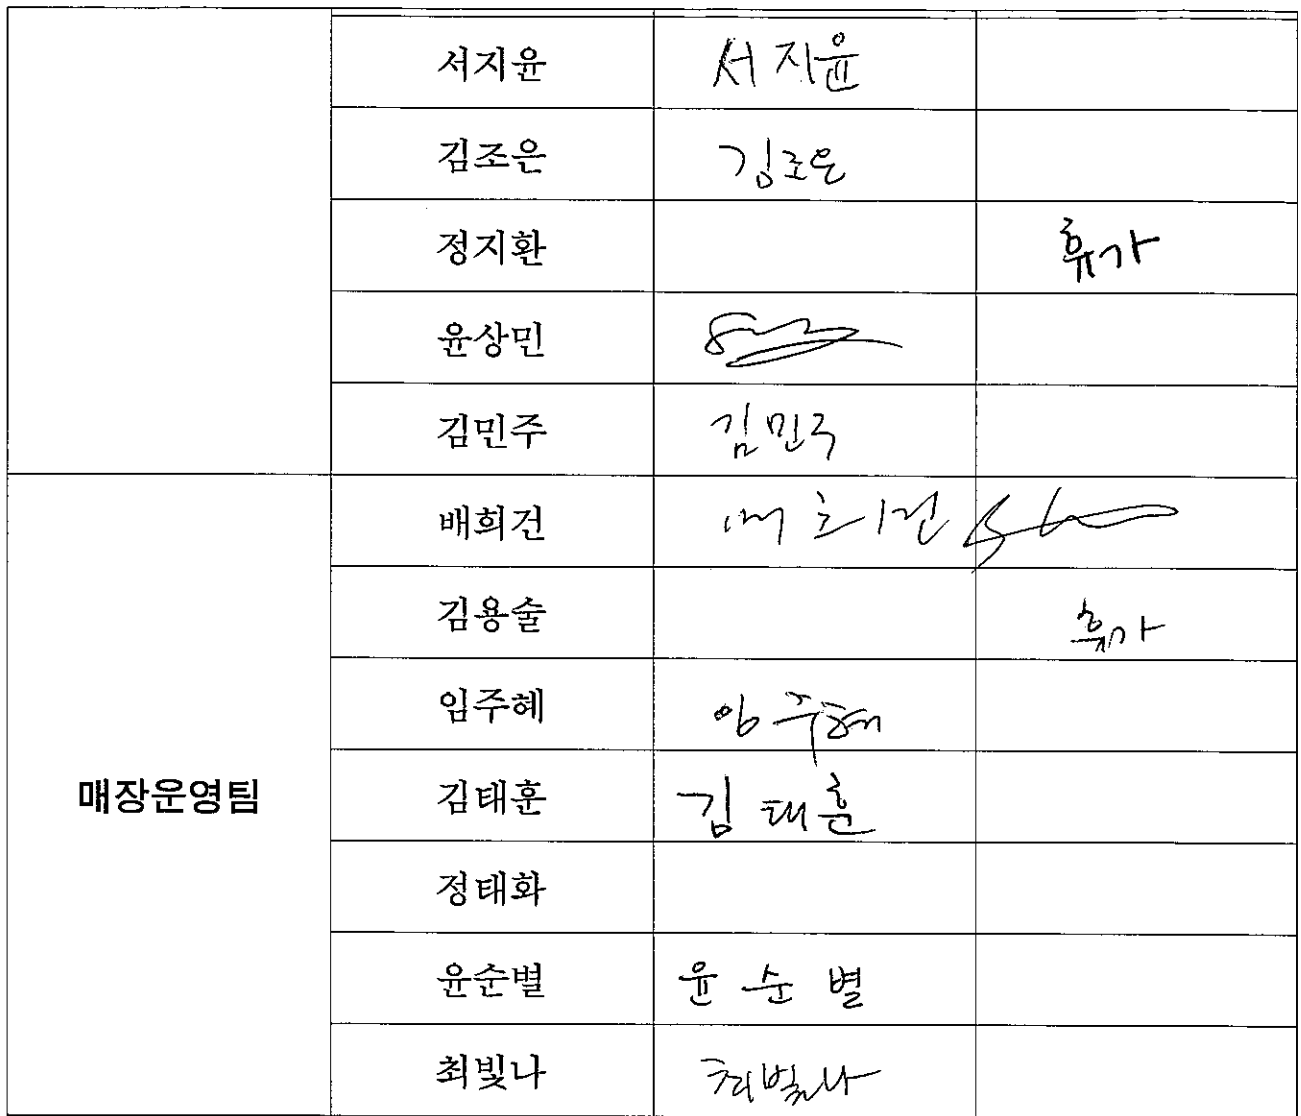 서지윤 서지윤
김조은 김조은
정지환 휴가
윤상민
김민주 김민주
배희건 배희건
김용술 휴가
임주혜 임주혜
매장운영팀 김태훈 김태훈
정태화
윤순별 윤순별
최빛나 최빛나